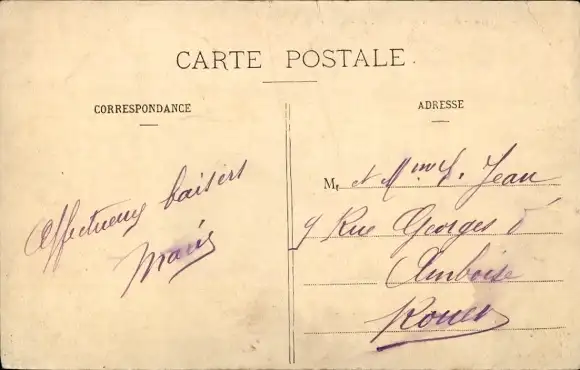 CARTE POSTALE
CORRESPONDANCE
ADRESSE
Affectueux baisers
Marie
Mr et Mme J. Jean
9 Rue Georges d'
Amboise
Rouen